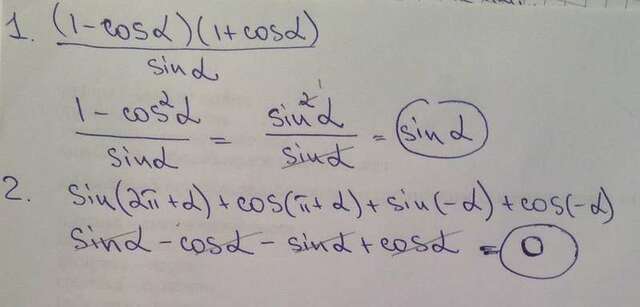 1. (1-cosα)(1+cosα)
sinα
1-cos²α = sin²α = sinα
sinα sinα
2. sin(2π+α)+cos(π+α)+sin(-α)+cos(-α)
sinα-cosα-sinα+cosα = 0